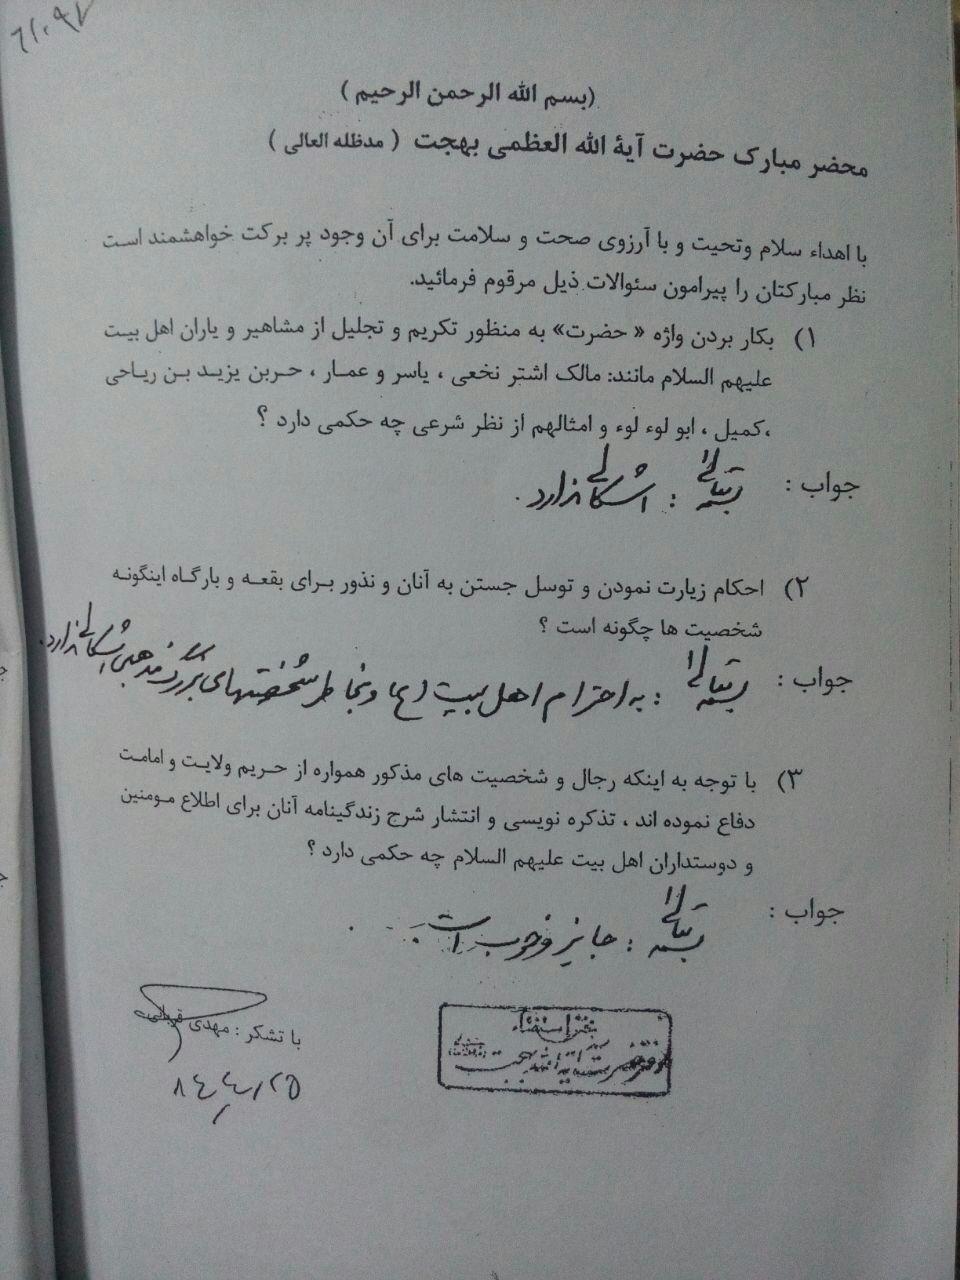 ۶۱۰۹۲
(بسم الله الرحمن الرحیم )
محضر مبارک حضرت آیة الله العظمی بهجت ( مدظله العالی )
با اهداء سلام وتحیت و با آرزوی صحت و سلامت برای آن وجود پر برکت خواهشمند است
نظر مبارکتان را پیرامون سئوالات ذیل مرقوم فرمائید.
۱) بکار بردن واژه « حضرت» به منظور تکریم و تجلیل از مشاهیر و یاران اهل بیت
علیهم السلام مانند: مالک اشتر نخعی ، یاسر و عمار ، حربن یزید بن ریاحی
،کمیل ، ابو لوء لوء و امثالهم از نظر شرعی چه حکمی دارد ؟
جواب : بسمه تعالی : اشکالی ندارد .
۲) احکام زیارت نمودن و توسل جستن به آنان و نذور برای بقعه و بارگاه اینگونه
شخصیت ها چگونه است ؟
جواب : بسمه تعالی : به احترام اهل بیت (ع) و بخاطر شخصیتهای بزرگ مذهبی اشکالی ندارد.
۳) با توجه به اینکه رجال و شخصیت های مذکور همواره از حریم ولایت و امامت
دفاع نموده اند ، تذکره نویسی و انتشار شرج زندگینامه آنان برای اطلاع مومنین
و دوستداران اهل بیت علیهم السلام چه حکمی دارد ؟
جواب : بسمه تعالی : جایز و خوب است .
با تشکر : مهدی قربانی
۸۴٫۴٫۲۵
دفتر استفتاء
دفتر حضرت آیة الله بهجت